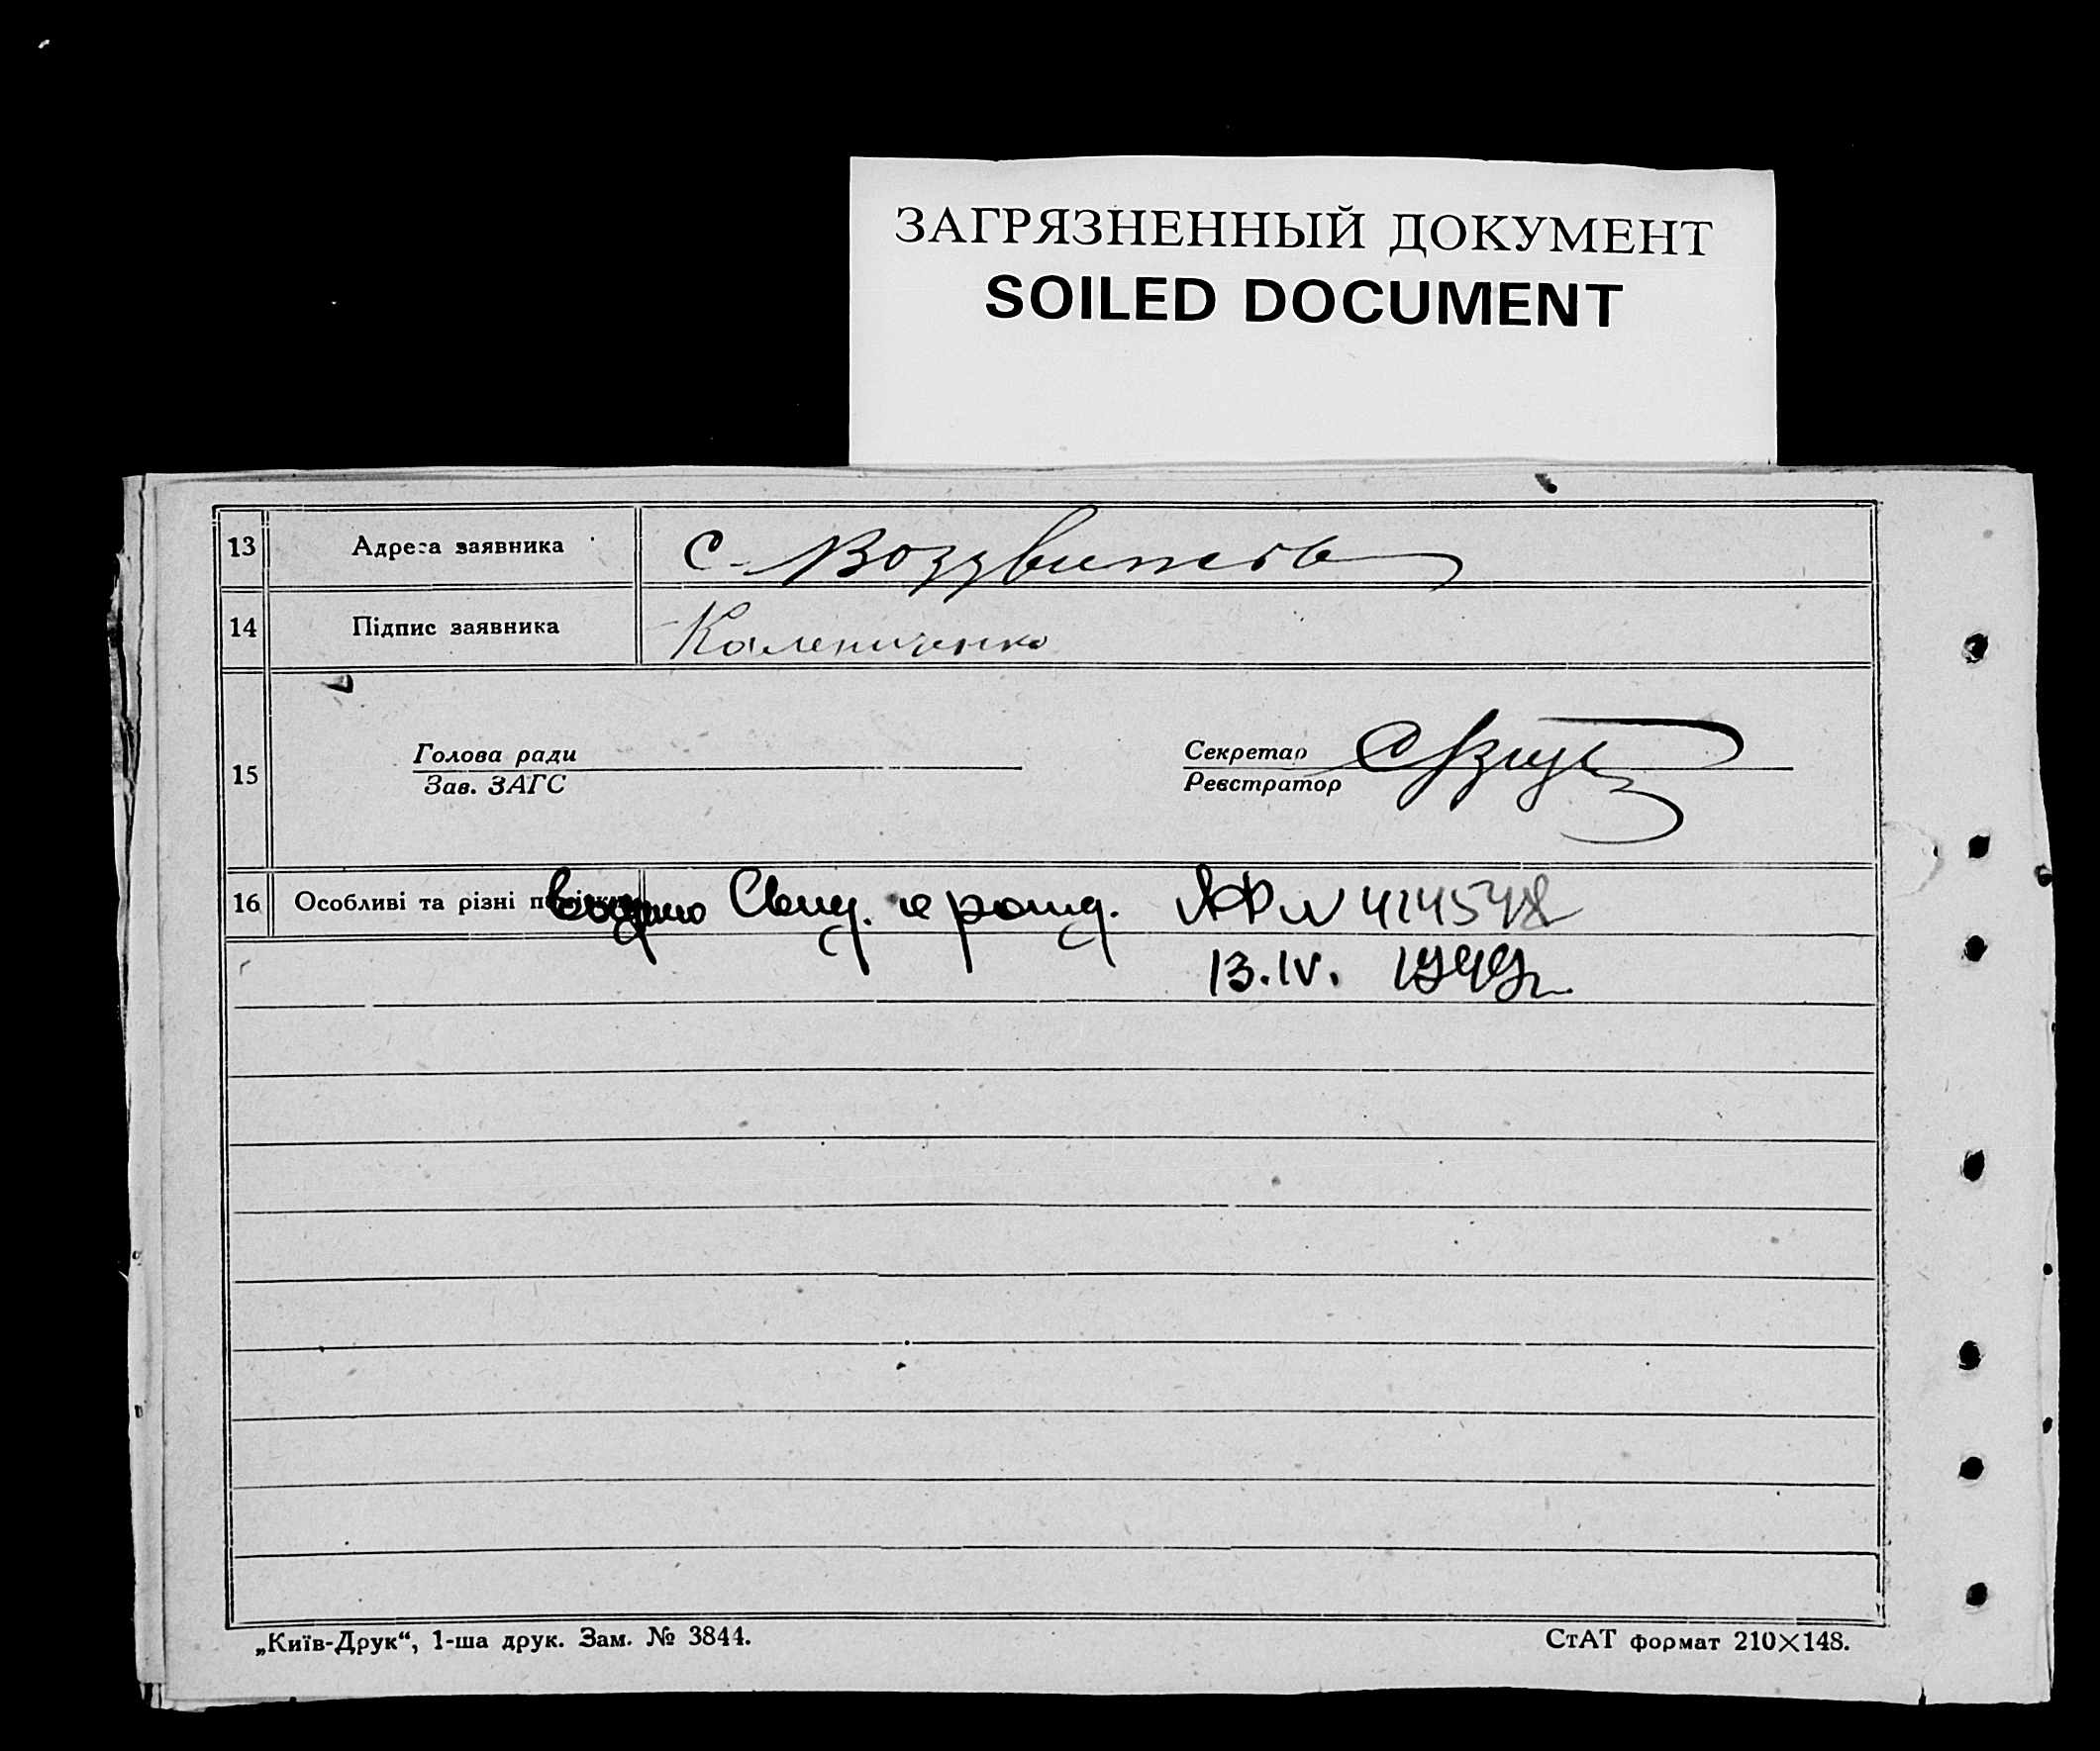 ЗАГРЯЗНЕННЫЙ ДОКУМЕНТ
SOILED DOCUMENT
13 Адреса заявника с. Воздвижсьв
14 Підпис заявника Калениченко
Голова ради Секретар
15
Зав. ЗАГС Реєстратор
16 Особливі та різні видано Свид. о рожд. № 414548
13.IV. 1949г.
„Київ-Друк“, 1-ша друк. Зам. № 3844. СтАТ формат 210×148.